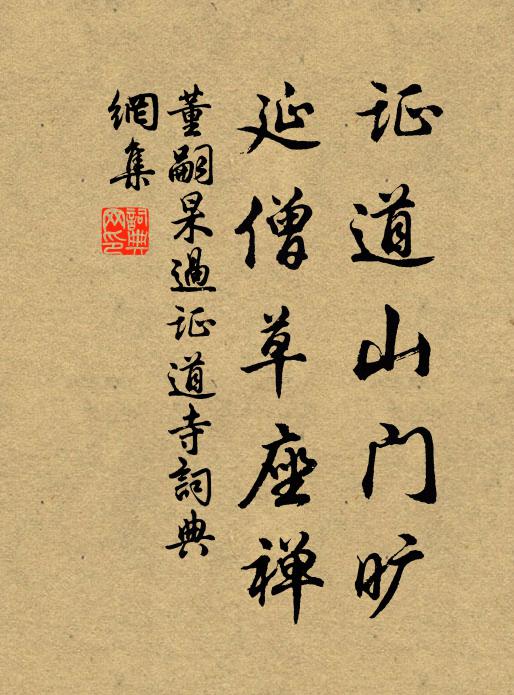 证道山门旷
延僧草座禅
董嗣杲過证道寺詞典
網集
詞典网印